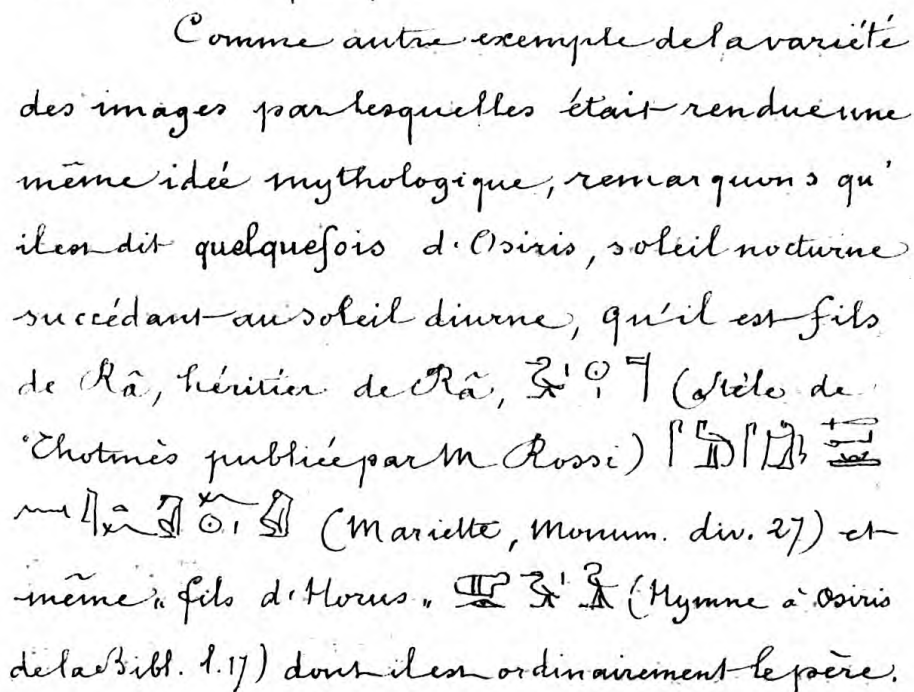 Comme autre exemple de la variété
des images par lesquelles était rendue une
même idée mythologique, remarquons qu'
il est dit quelquefois d'Osiris, soleil nocturne
succédant au soleil diurne, qu'il est fils
de Râ, héritier de Râ, (Stèle de
Thotmès publiée par M Rossi)
(Mariette, Monum. div. 27) et
même "fils d'Horus" (Hymne à Osiris
de la Bibl. l.17) dont il est ordinairement le père.